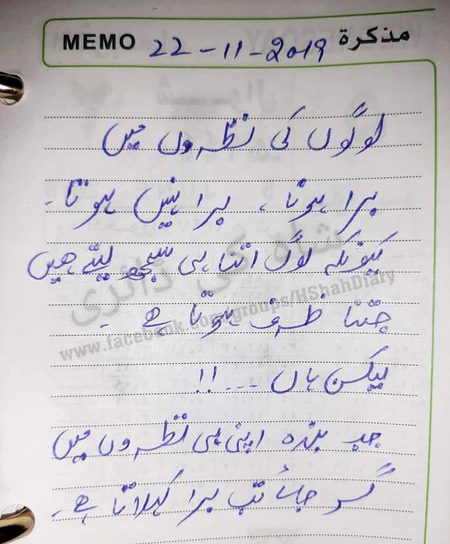 MEMO 22-11-2019 مذكرة
لوگوں کی نظروں میں
برا ہونا، برا نہیں ہوتا۔
کیونکہ لوگ اتنا ہی سمجھ لیتے ھیں
جتنا ظرف ہوتا ہے۔
لیکن ہاں ---!!
جب بندہ اپنی ہی نظروں میں
گر جائے تب برا کہلاتا ہے۔
شاہ کی ڈائری
www.facebook.com/groups/HShahDiary